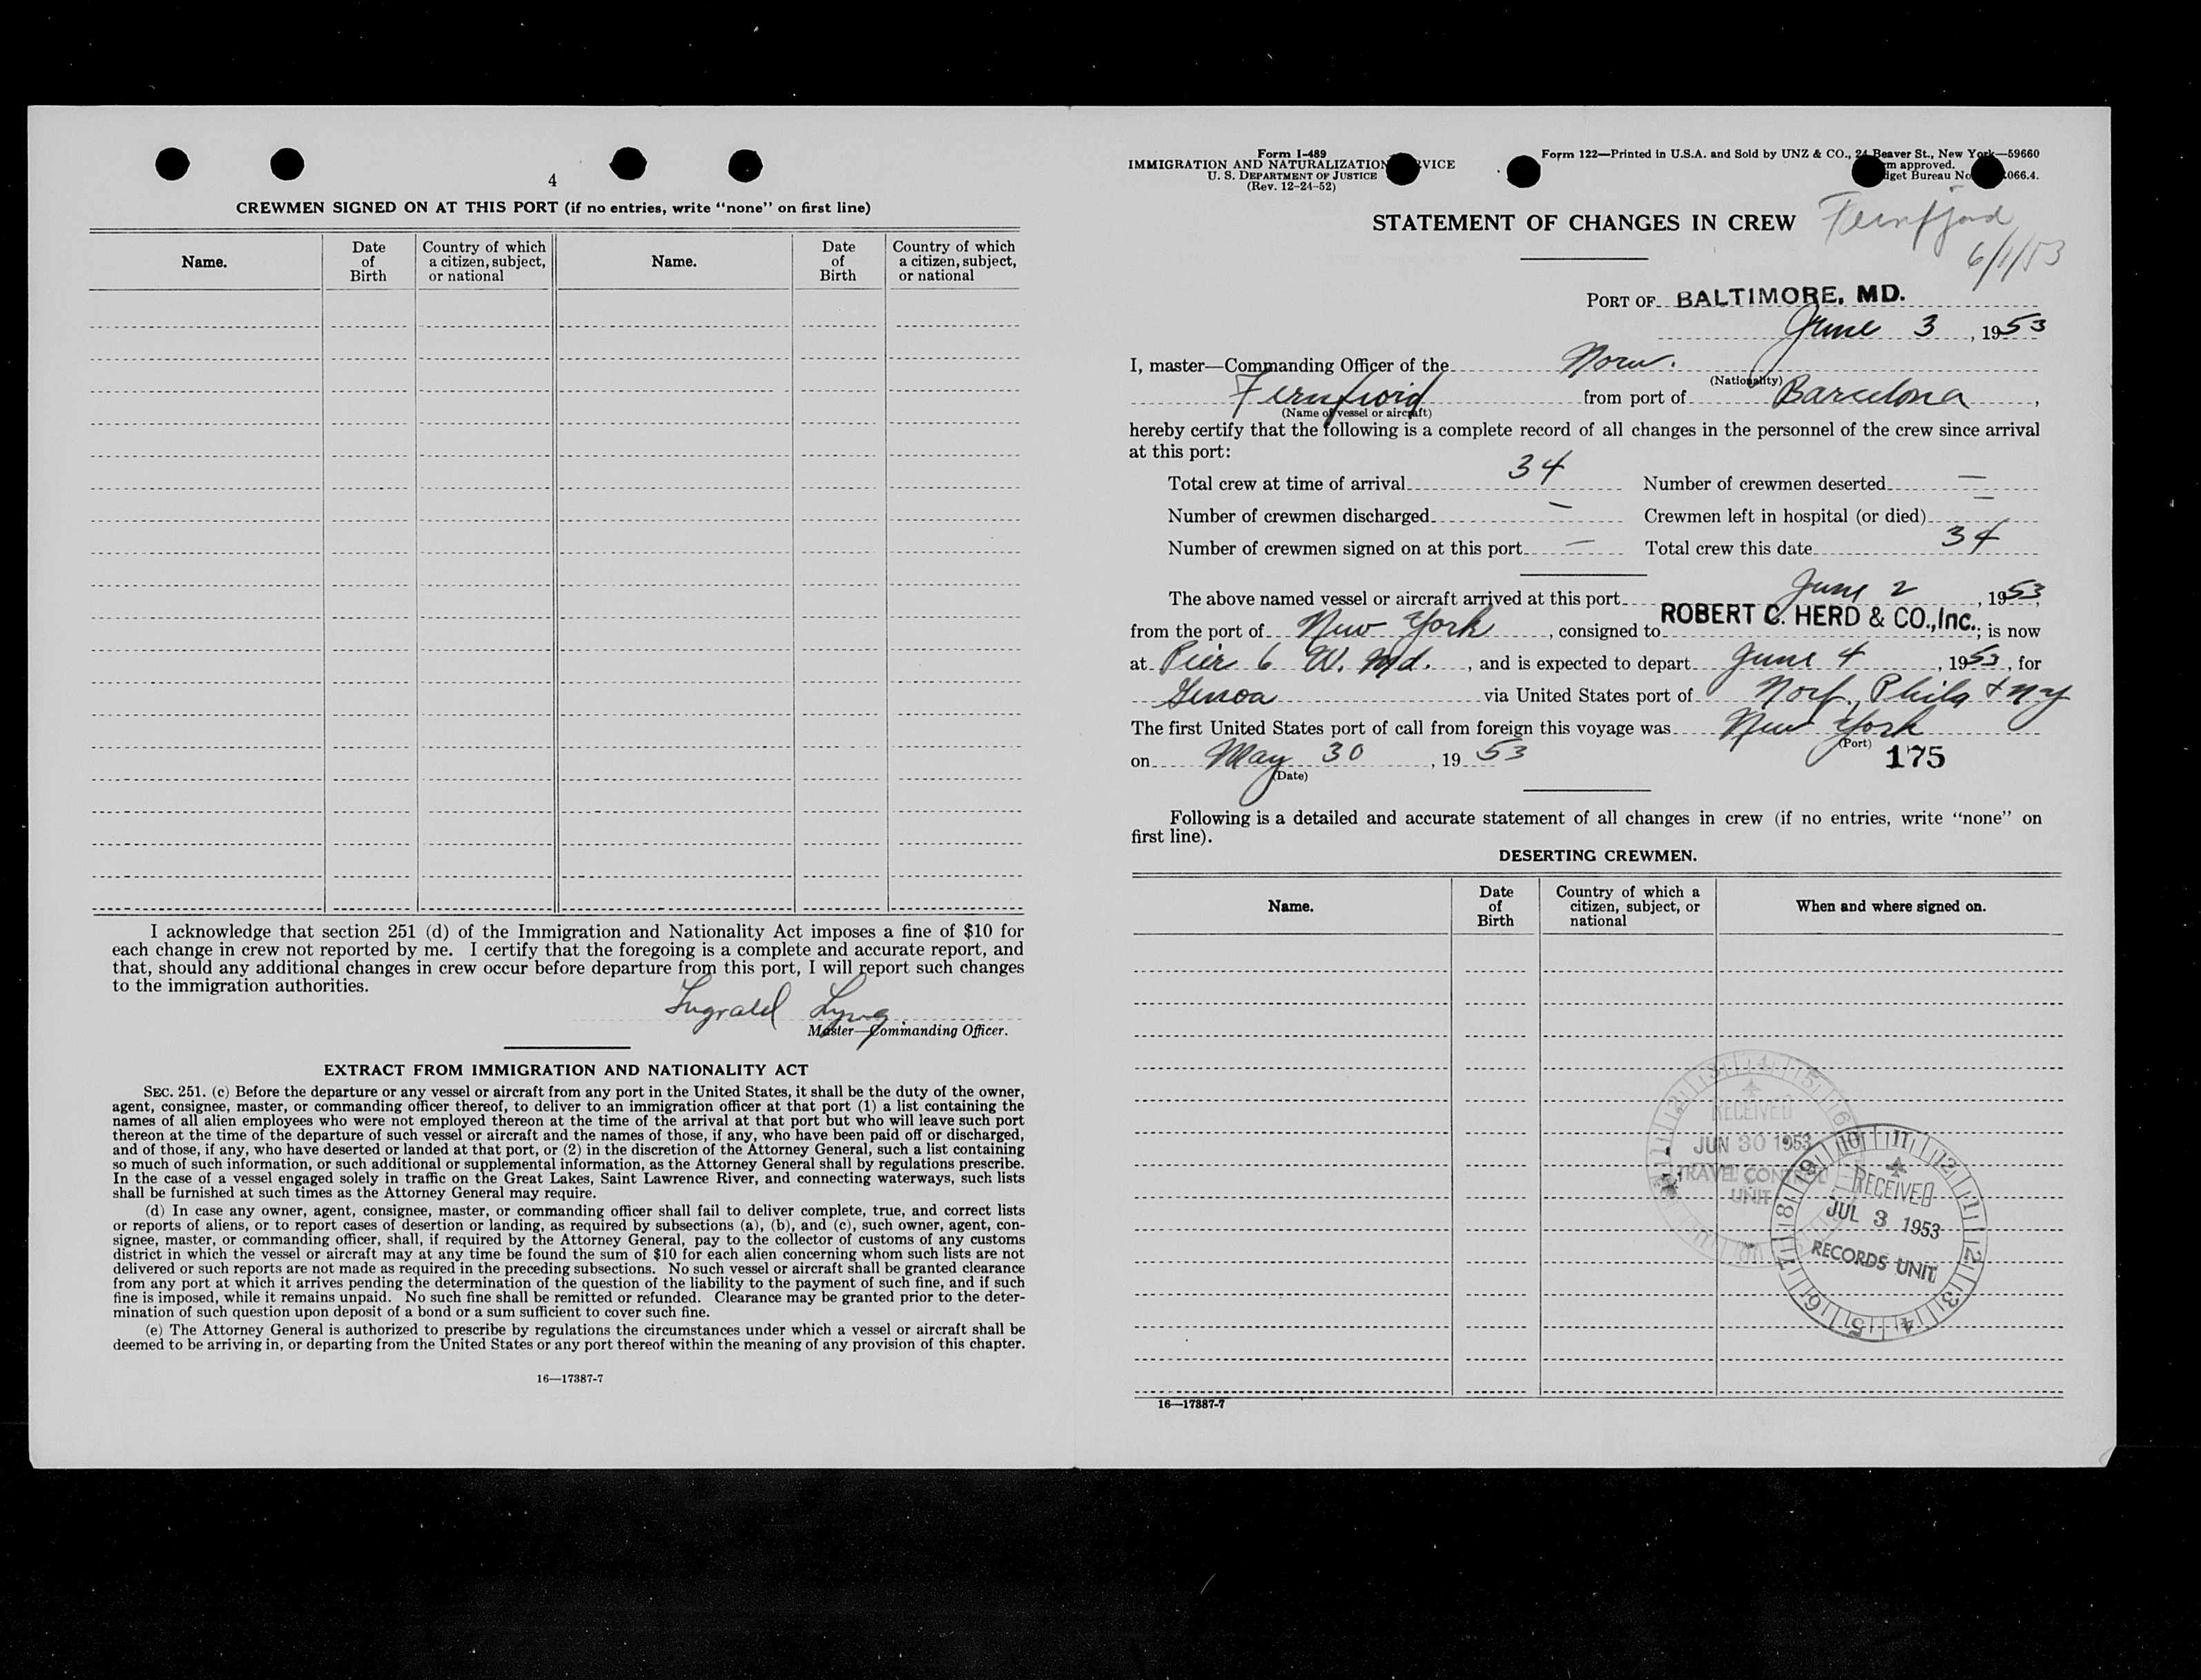 4
CREWMEN SIGNED ON AT THIS PORT (if no entries, write “none” on first line)
Name.
Date of Birth
Country of which a citizen, subject, or national
Name.
Date of Birth
Country of which a citizen, subject, or national
I acknowledge that section 251 (d) of the Immigration and Nationality Act imposes a fine of $10 for
each change in crew not reported by me. I certify that the foregoing is a complete and accurate report, and
that, should any additional changes in crew occur before departure from this port, I will report such changes
to the immigration authorities.
Lyng
Master—Commanding Officer.
EXTRACT FROM IMMIGRATION AND NATIONALITY ACT
SEC. 251. (c) Before the departure or any vessel or aircraft from any port in the United States, it shall be the duty of the owner,
agent, consignee, master, or commanding officer thereof, to deliver to an immigration officer at that port (1) a list containing the
names of all alien employees who were not employed thereon at the time of the arrival at that port but who will leave such port
thereon at the time of the departure of such vessel or aircraft and the names of those, if any, who have been paid off or discharged,
and of those, if any, who have deserted or landed at that port, or (2) in the discretion of the Attorney General, such a list containing
so much of such information, or such additional or supplemental information, as the Attorney General shall by regulations prescribe.
In the case of a vessel engaged solely in traffic on the Great Lakes, Saint Lawrence River, and connecting waterways, such lists
shall be furnished at such times as the Attorney General may require.
(d) In case any owner, agent, consignee, master, or commanding officer shall fail to deliver complete, true, and correct lists
or reports of aliens, or to report cases of desertion or landing, as required by subsections (a), (b), and (c), such owner, agent, con-
signee, master, or commanding officer, shall, if required by the Attorney General, pay to the collector of customs of any customs
district in which the vessel or aircraft may at any time be found the sum of $10 for each alien concerning whom such lists are not
delivered or such reports are not made as required in the preceding subsections. No such vessel or aircraft shall be granted clearance
from any port at which it arrives pending the determination of the question of the liability to the payment of such fine, and if such
fine is imposed, while it remains unpaid. No such fine shall be remitted or refunded. Clearance may be granted prior to the deter-
mination of such question upon deposit of a bond or a sum sufficient to cover such fine.
(e) The Attorney General is authorized to prescribe by regulations the circumstances under which a vessel or aircraft shall be
deemed to be arriving in, or departing from the United States or any port thereof within the meaning of any provision of this chapter.
16—17387-7
Form I-489
IMMIGRATION AND NATURALIZATION SERVICE
U. S. DEPARTMENT OF JUSTICE
(Rev. 12-24-52)
Form 122—Printed in U.S.A. and Sold by UNZ & CO., 24 Beaver St., New York—59660
approved.
Budget Bureau No. 066.4.
STATEMENT OF CHANGES IN CREW
Fernfjord
6/1/53
PORT OF BALTIMORE, MD.
June 3, 1953
I, master—Commanding Officer of the Norw.
(Nationality)
Fernfjord from port of Barcelona,
(Name of vessel or aircraft)
hereby certify that the following is a complete record of all changes in the personnel of the crew since arrival
at this port:
Total crew at time of arrival 34 Number of crewmen deserted —
Number of crewmen discharged — Crewmen left in hospital (or died) —
Number of crewmen signed on at this port — Total crew this date 34
The above named vessel or aircraft arrived at this port June 2, 1953,
from the port of New York, consigned to ROBERT C. HERD & CO., Inc.; is now
at Pier 6 W. Md., and is expected to depart June 4, 1953, for
Genoa via United States port of Norf, Phila + NY
The first United States port of call from foreign this voyage was New York
(Port)
on May 30, 1953
(Date)
175
Following is a detailed and accurate statement of all changes in crew (if no entries, write “none” on
first line).
DESERTING CREWMEN.
Name.
Date of Birth
Country of which a citizen, subject, or national
When and where signed on.
RECEIVED
JUN 30 1953
TRAVEL CONTROL
UNIT
RECEIVED
JUL 3 1953
RECORDS UNIT
16—17387-7